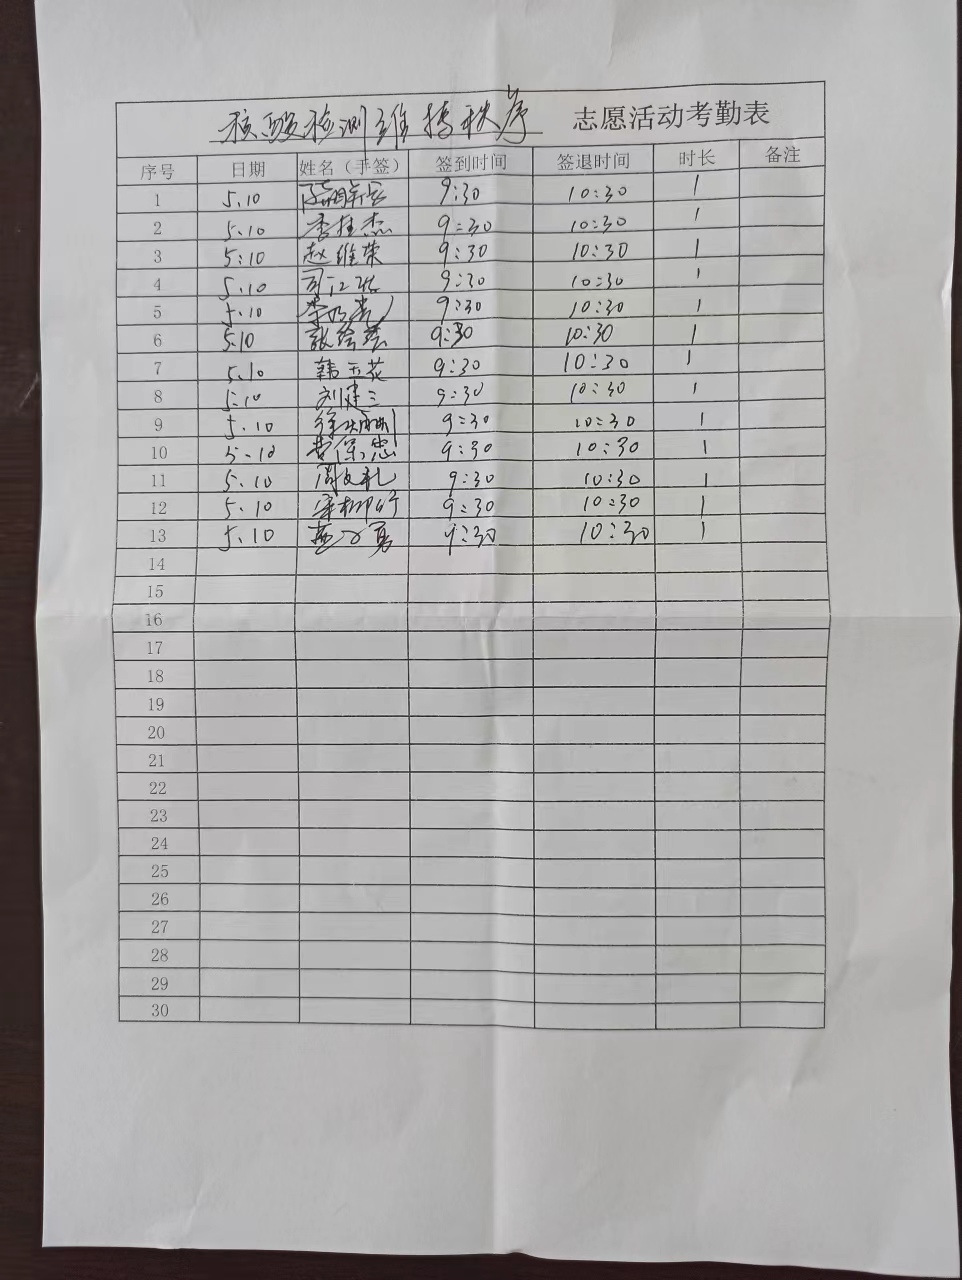 核酸检测维持秩序 志愿活动考勤表
序号 日期 姓名（手签） 签到时间 签退时间 时长 备注
1 5.10 9:30 10:30 1
2 5.10 李桂杰 9:30 10:30 1
3 5:10 赵维荣 9:30 10:30 1
4 5.10 9:30 10:30 1
5 5.10 9:30 10:30 1
6 5.10 9:30 10:30 1
7 5.10 韩玉花 9:30 10:30 1
8 5:10 刘建三 9:30 10:30 1
9 5.10 9:30 10:30 1
10 5.10 曹保忠 9:30 10:30 1
11 5.10 周文礼 9:30 10:30 1
12 5.10 9:30 10:30 1
13 5.10 9:30 10:30 1
14
15
16
17
18
19
20
21
22
23
24
25
26
27
28
29
30